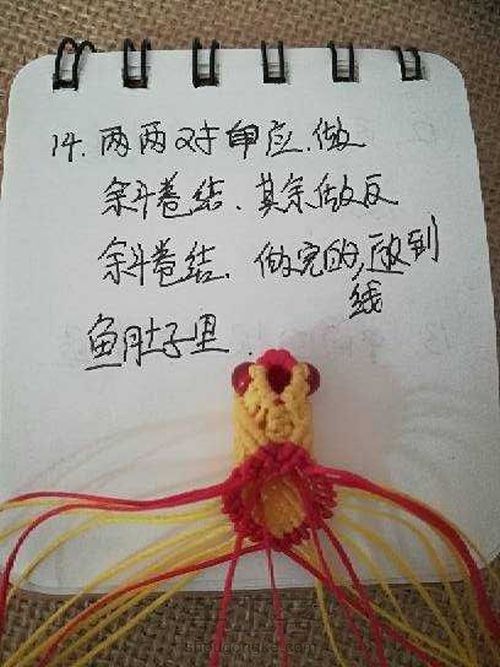 14. 两两对申应.做
斜卷结、其余做反
斜卷结. 做完的线放到
鱼肚子里.
shougongke.com